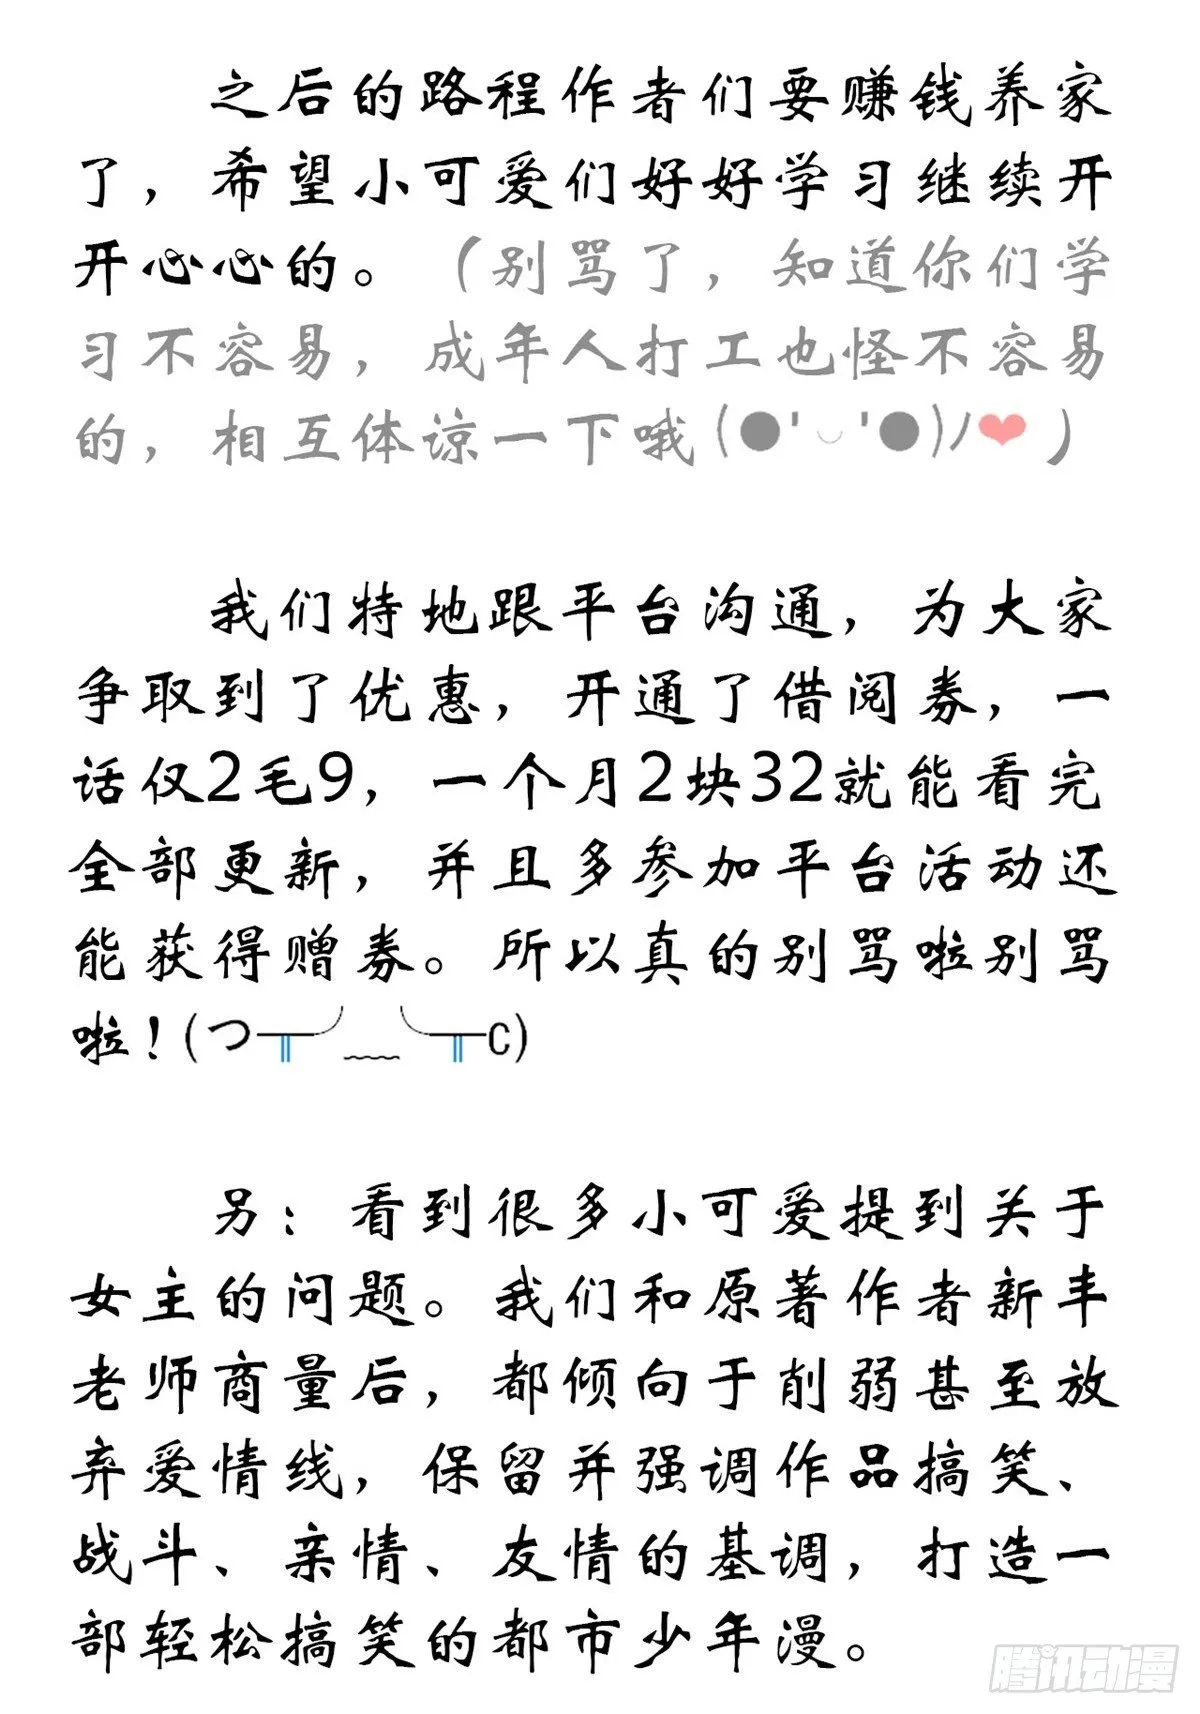 之后的路程作者们要赚钱养家
了，希望小可爱们好好学习继续开
开心心的。（别骂了，知道你们学
习不容易，成年人打工也怪不容易
的，相互体谅一下哦(●'◡'●)ﾉ❤）
我们特地跟平台沟通，为大家
争取到了优惠，开通了借阅券，一
话仅2毛9，一个月2块32就能看完
全部更新，并且多参加平台活动还
能获得赠券。所以真的别骂啦别骂
啦！(つ─┬╯﹏╰┬─C)
另：看到很多小可爱提到关于
女主的问题。我们和原著作者新丰
老师商量后，都倾向于削弱甚至放
弃爱情线，保留并强调作品搞笑、
战斗、亲情、友情的基调，打造一
部轻松搞笑的都市少年漫。
腾讯动漫